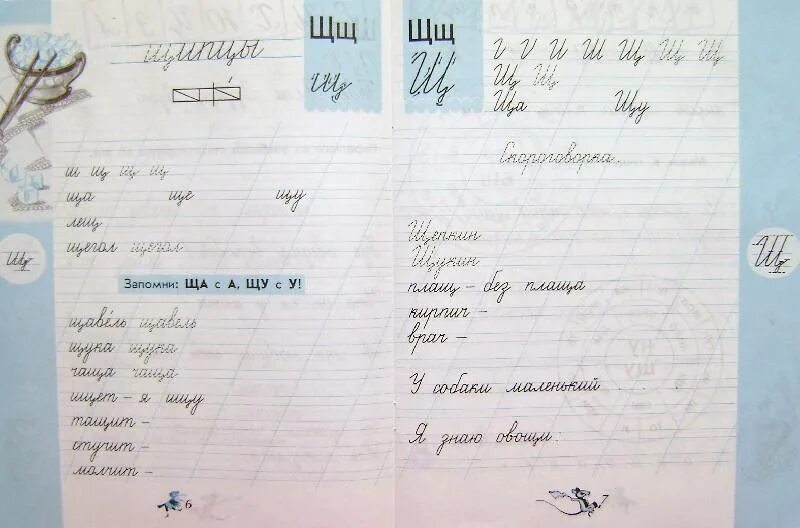 щипцы
Щщ
Щщ
ш щ щ щ
ща ще щу
лещ
щегол щегол
Щщ
Запомни: ЩА с А, ЩУ с У!
щавель щавель
щука щука
чаща чаща
ищет – я ищу
тащит –
стучит –
молчит –
6
Щщ
Щ
И Ш Щ Щ Щ
Щ Щ
Ща Щу
Скороговорка.
Щепкин
Щукин
плащ – без плаща
кирпич –
врач –
У собаки маленький
Я знаю овощи:
Щ
7